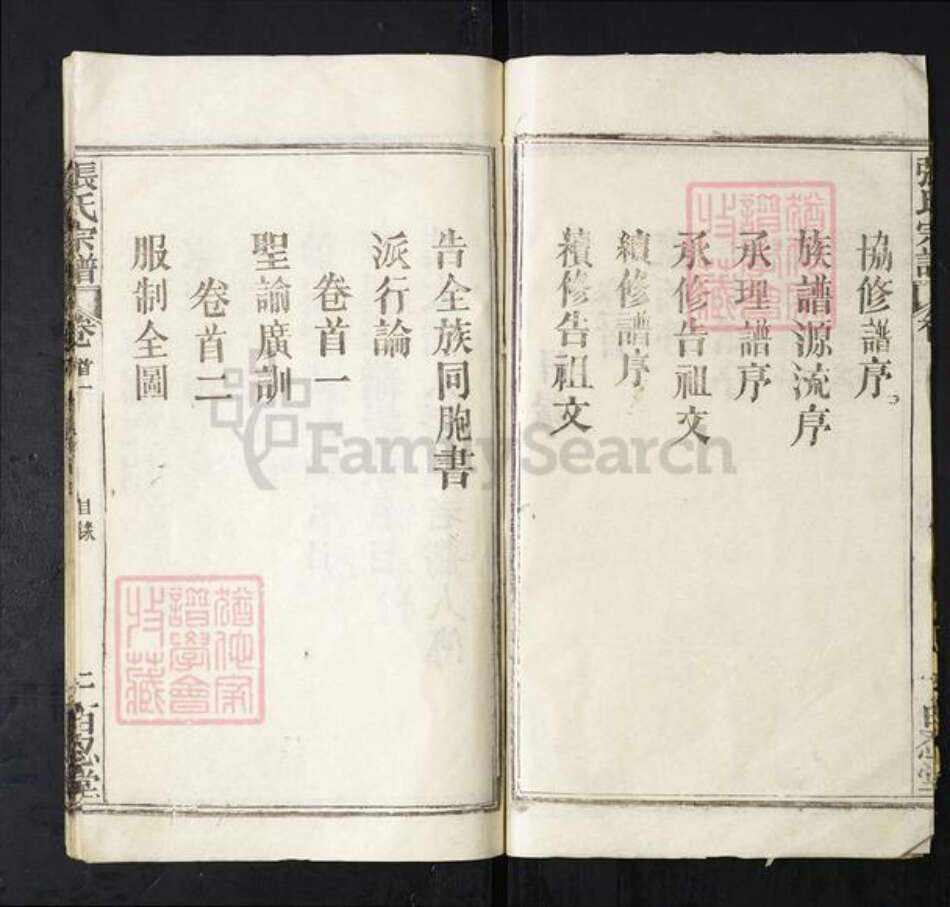 協修譜序
族譜源流序
承理譜序
承修告祖文
續修譜序
續修告祖文
告全族同胞書
派行論
卷首一
聖諭廣訓
卷首二
服制全圖
張氏宗譜
卷首一
目錄
二
百忍堂
猶他家譜學會收藏
猶他家譜學會收藏
FamilySearch